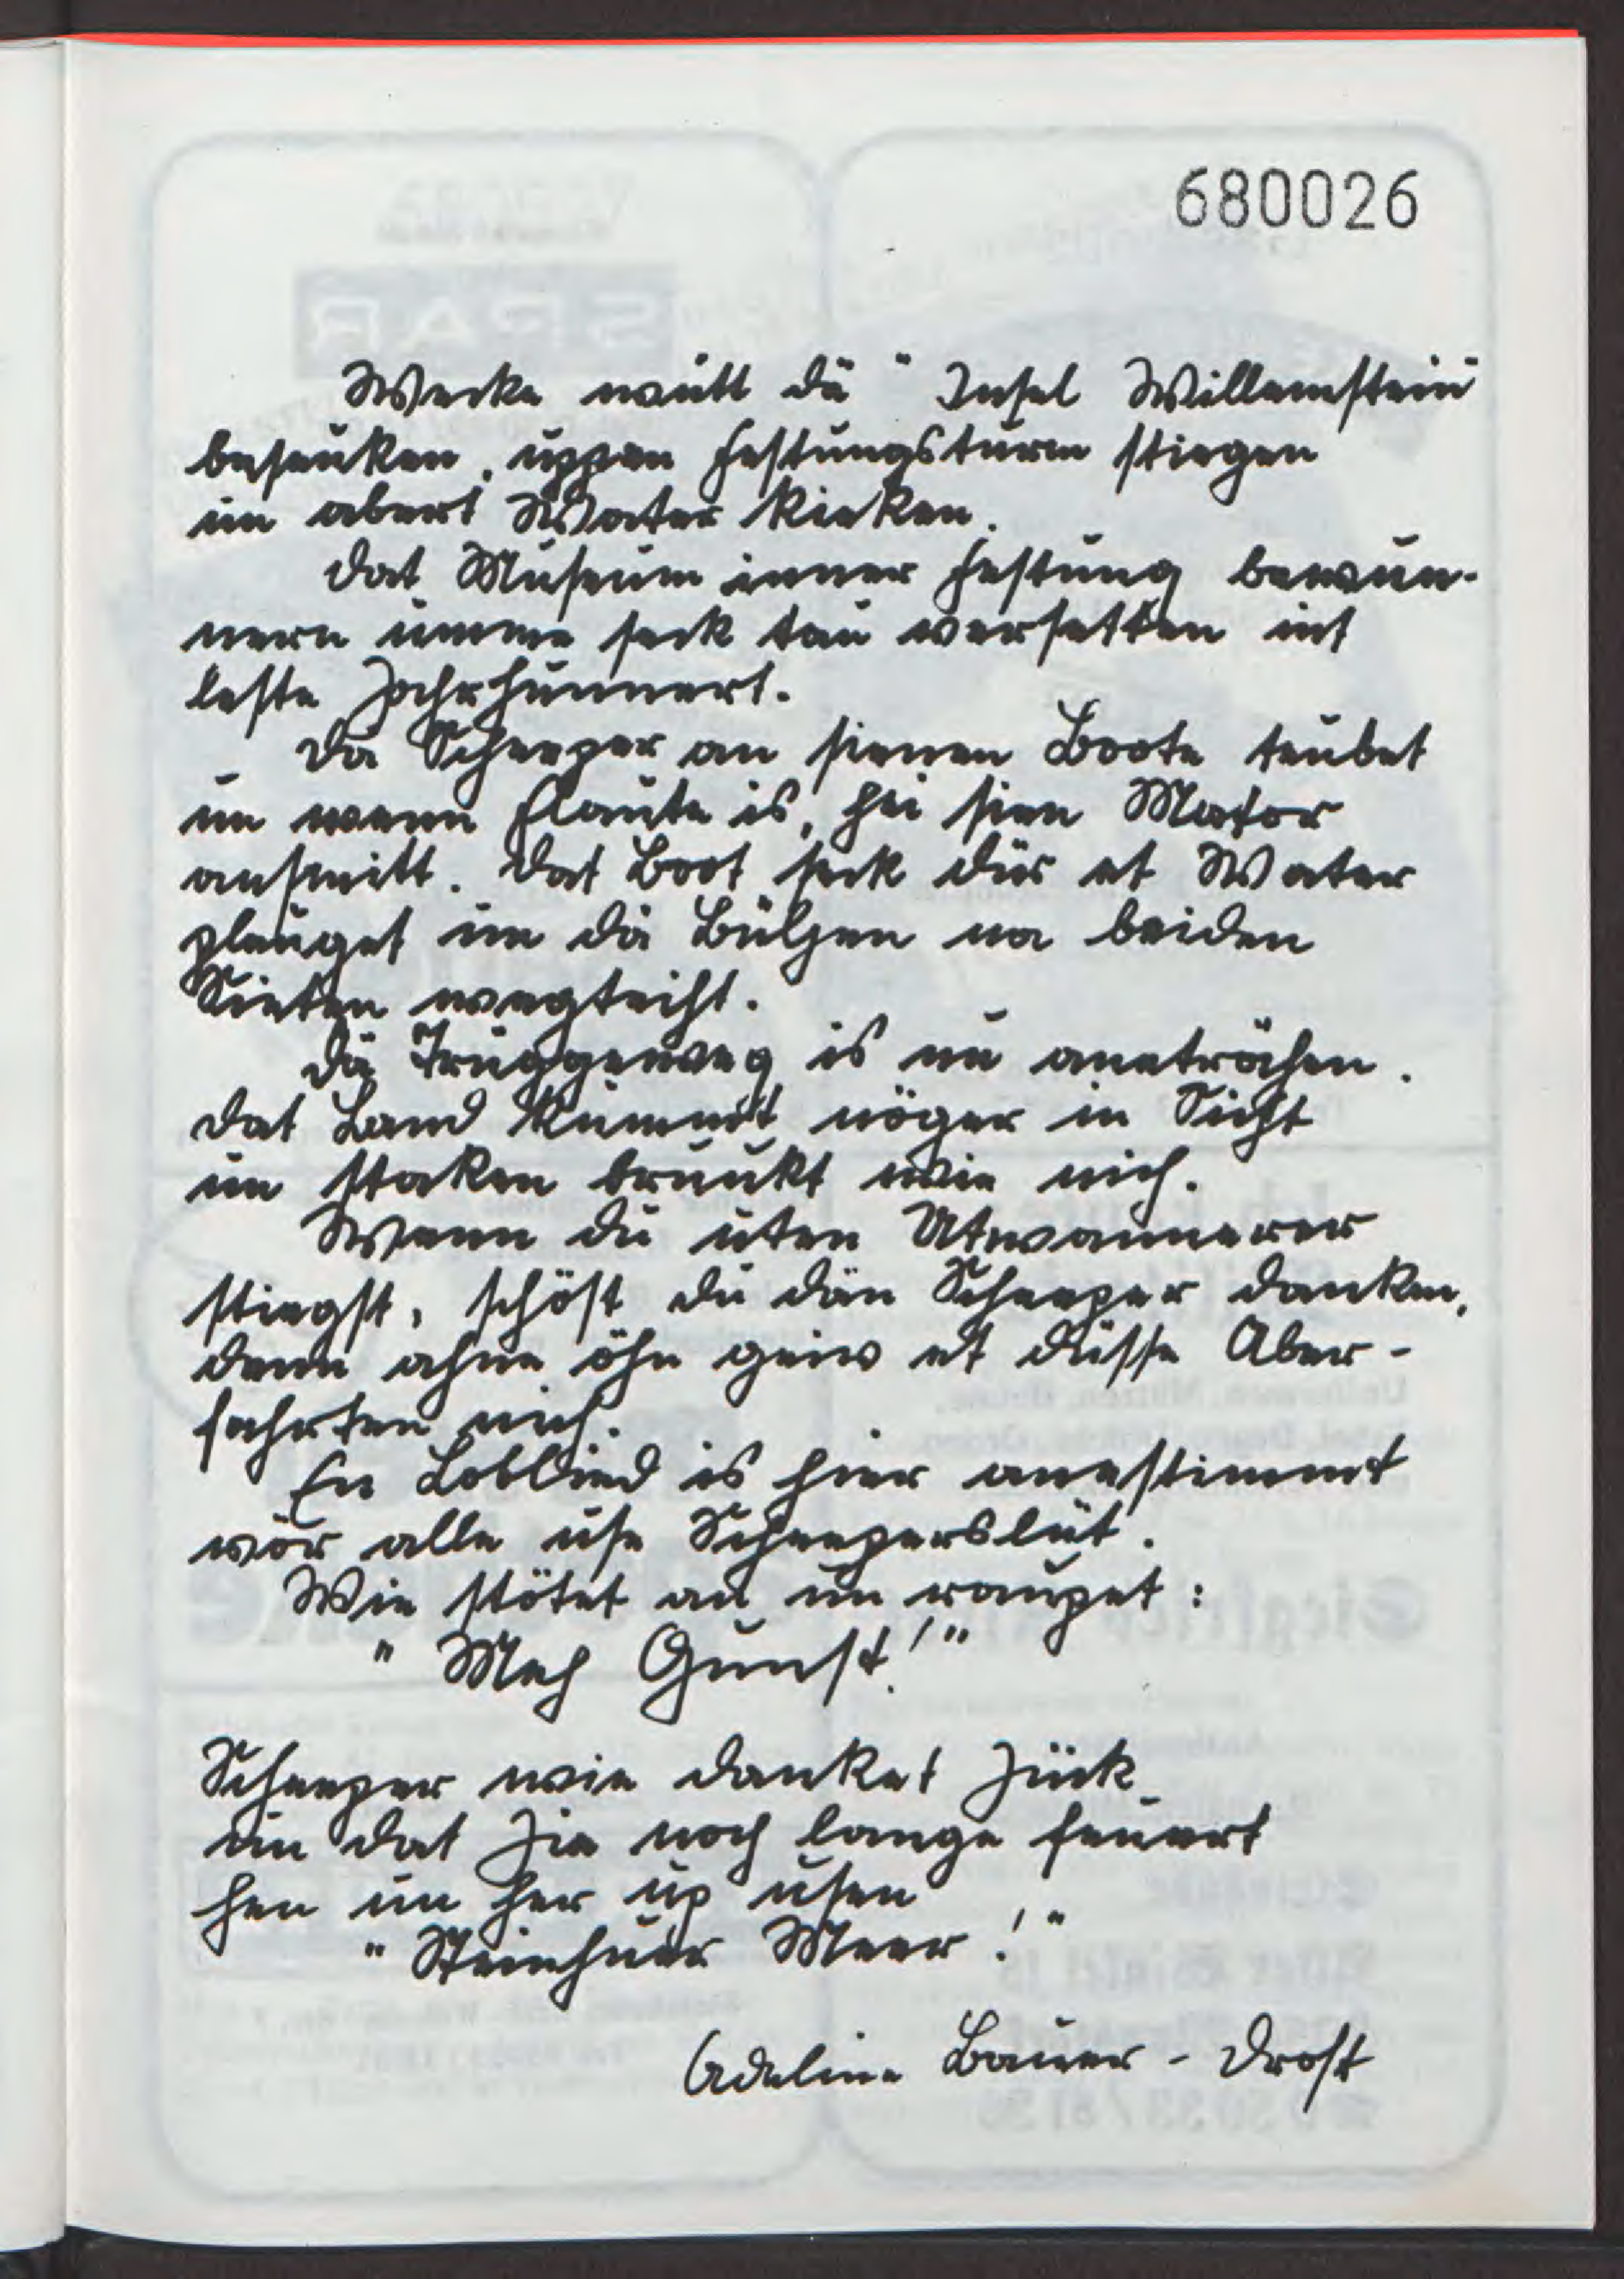 680026
Wecke wütt dä "Insel Willemstein"
beseuken, uppen Festungsturm stiegen
un abert Water kieken.
Dat Museum inner Festung bewun-
nern umme seck tau versetten int
leste Jahrhunnert.
Dä Scheeper an sienen Boote teubet
un wenn Flaute is, hei sien Motor
ansmitt. Dat Boot seck dür et Water
pleuget un dä Bülgen na beiden
Sieten wegteiht.
Dä Trüggeweg is nu anetröchen.
Dat Land kummt nöger in Sicht
un staken bruukt wie nich.
Wenn du uten Utwannerer
stiegst, schöst du dän Scheeper danken,
denn ahne öhn geiw et düsse Aber-
fahrten nich.
En Loblied is hier anestimmt
vör alle use Scheeperslüt.
Wie stötet an un raupet:
"Meh Gunst!"
Scheeper wie danket Jück
un dat Jie noch lange feuert
hen un her up usen
"Steinhuer Meer!"
Adeline Bauer - Drost
SPAR